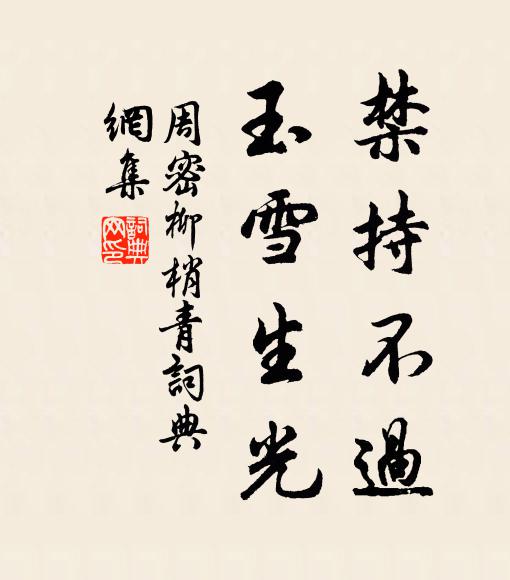 禁持不過
玉雪生光
周密柳梢青詞典
網集
詞典
網印